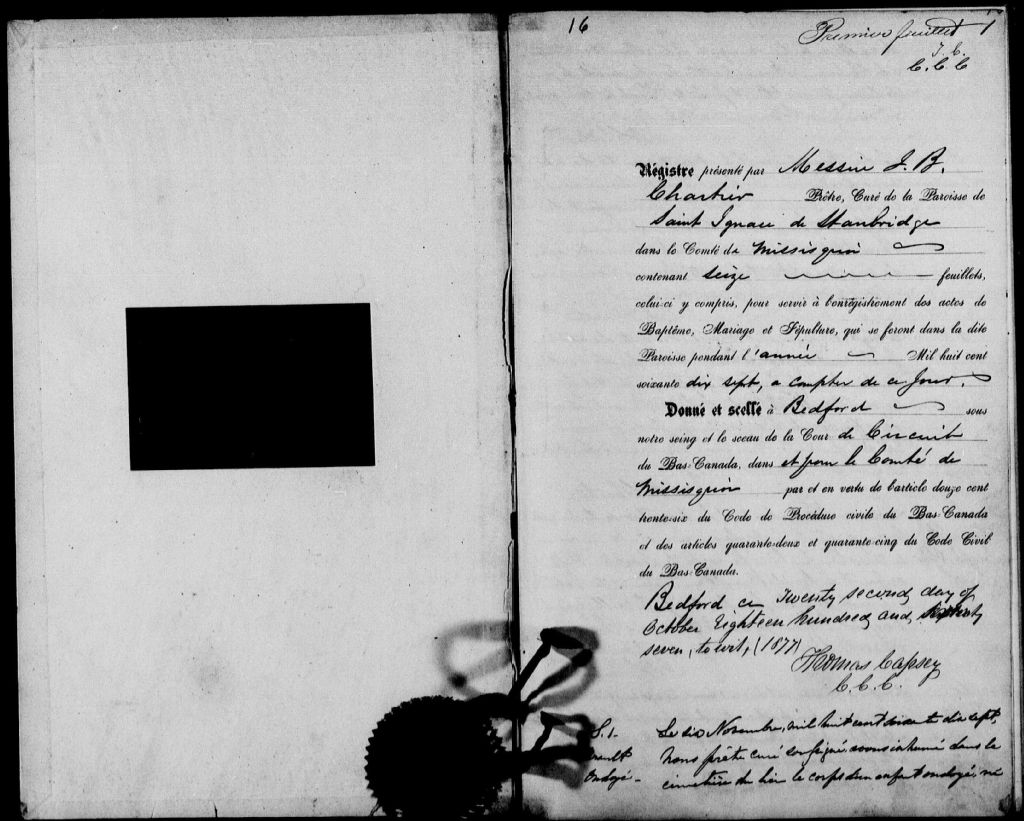 16
Premier feuillet 1
T. C.
C. C. C
Régistre présenté par Messire J. B.
Chartier Prêtre, Curé de la Paroisse de
Saint Ignace de Stanbridge
dans le Comté de Missisquoi
contenant seize feuillets,
celui-ci y compris, pour servir à l'enregistrement des actes de
Baptême, Mariage et Sépulture, qui se feront dans la dite
Paroisse pendant l'année Mil huit cent
soixante dix sept, a compter de ce Jour.
Donné et scellé à Bedford sous
notre seing et le sceau de la Cour de Circuit
du Bas-Canada, dans et pour le Comté de
Missisquoi par et en vertu de l'article douze cent
trente-six du Code de Procédure civile du Bas-Canada
et des articles quarante-deux et quarante-cinq du Code Civil
du Bas-Canada.
Bedford ce Twenty second day of
October Eighteen hundred and seventy
seven, to wit, (1877)
Thomas Capsey
C. C. C.
S. 1- Le six Novembre, mil huit cent soixante dix sept,
nous prêtre curé soussigné avons inhumé dans le
Ondoyé - cimetière du lieu le corps d'un enfant ondoyé, né